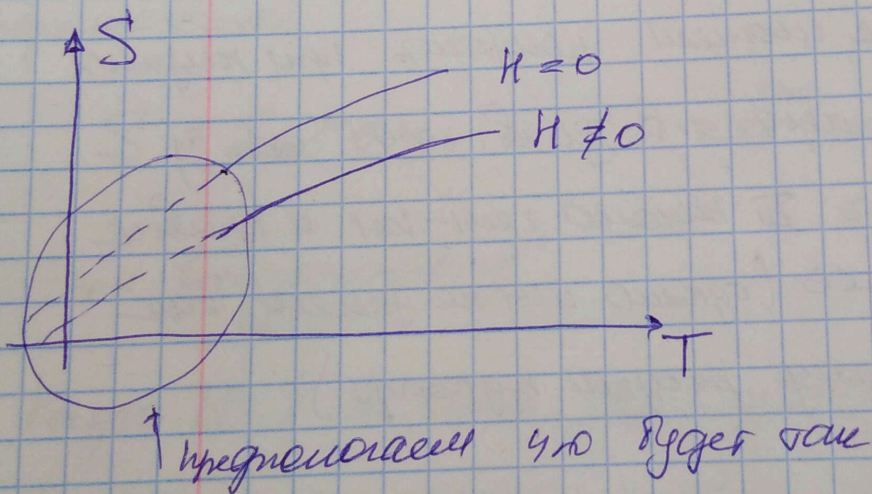 S
H = 0
H ≠ 0
T
предпологаем что будет так